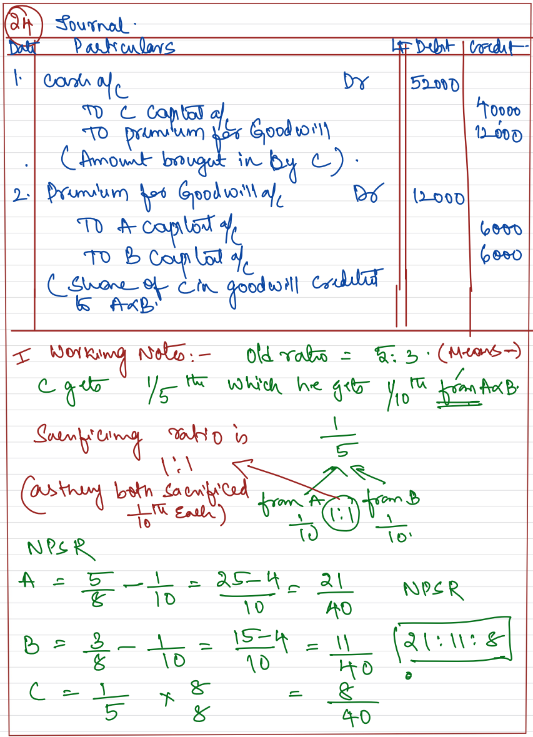 24 Journal.
Date Particulars LF Debit Credit
1. Cash a/c Dr 52000
To C Capital a/c 40000
To premium for Goodwill 12000
(Amount brought in by C).
2. Premium for Goodwill a/c Dr 12000
To A capital a/c 6000
To B Capital a/c 6000
(Share of C in goodwill credited
to A&B.
I Working Notes:- Old ratio = 5:3. (Means→)
C gets 1/5 th which he gets 1/10 th from A&B
Sacrificing ratio is 1/5
1:1
(as they both sacrificed from A 1:1 from B
1/10 th Each) 1/10 1/10.
NPSR
A = 5/8 - 1/10 = 25-4/10 = 21/40 NPSR
B = 3/8 - 1/10 = 15-4/10 = 11/40 21:11:8
C = 1/5 × 8/8 = 8/40